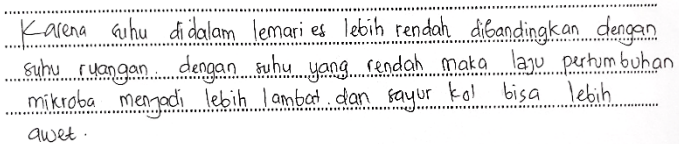 Karena suhu didalam lemari es lebih rendah dibandingkan dengan
suhu ruangan. dengan suhu yang rendah maka laju pertumbuhan
mikroba menjadi lebih lambat. dan sayur kol bisa lebih
awet.